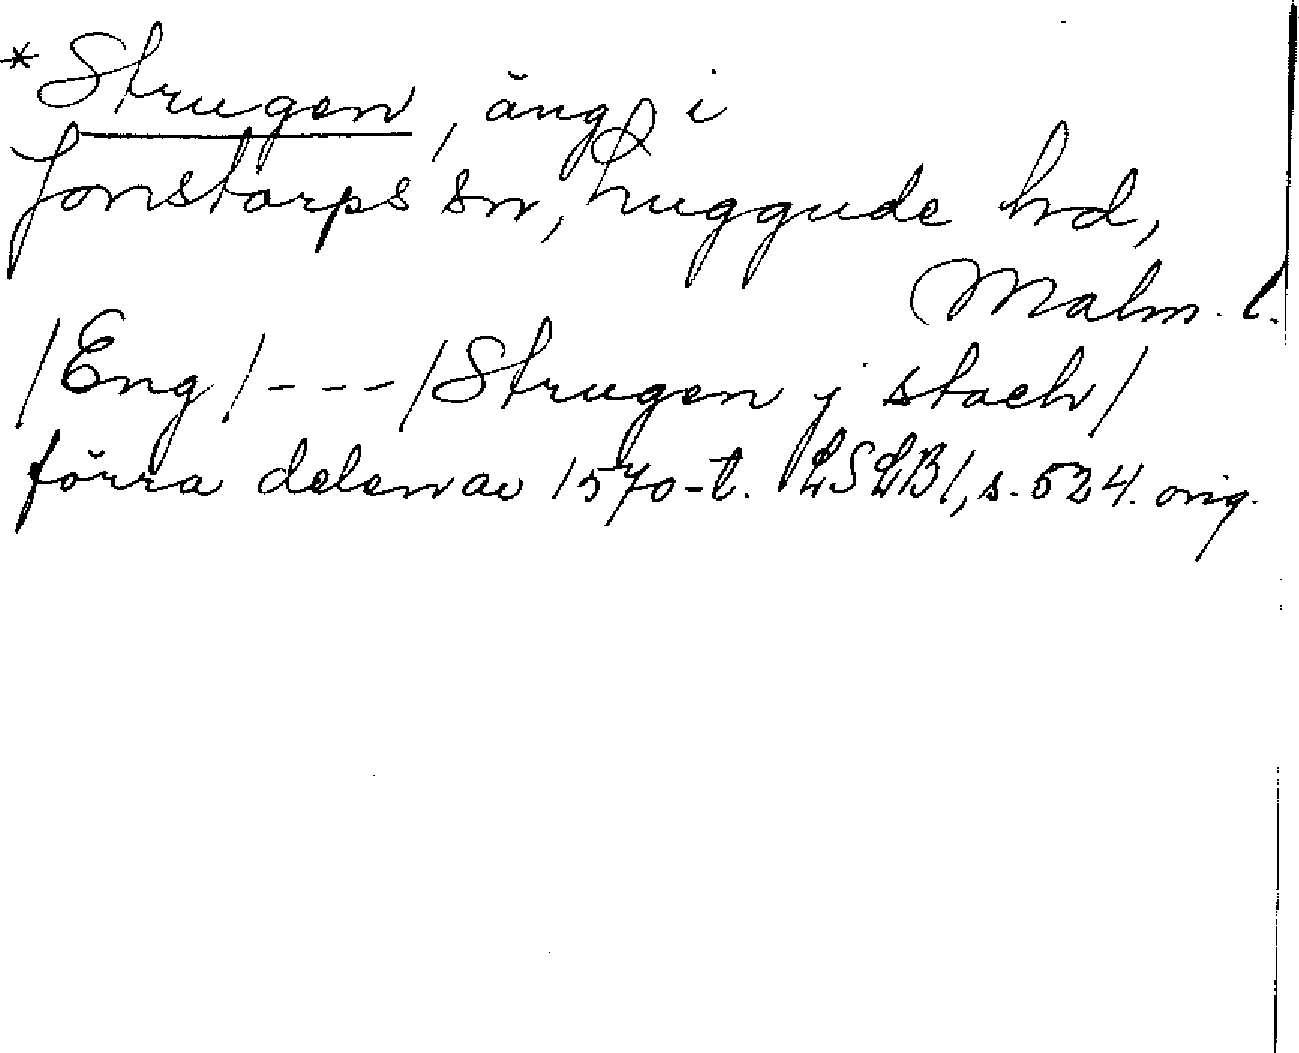 *Strugen, äng i
Jonstorps sn, Luggude hd,
Malm. l.
/Eng/---/Strugen j stach/
förra delen av 1570-t. LSLB1, s. 524. orig.